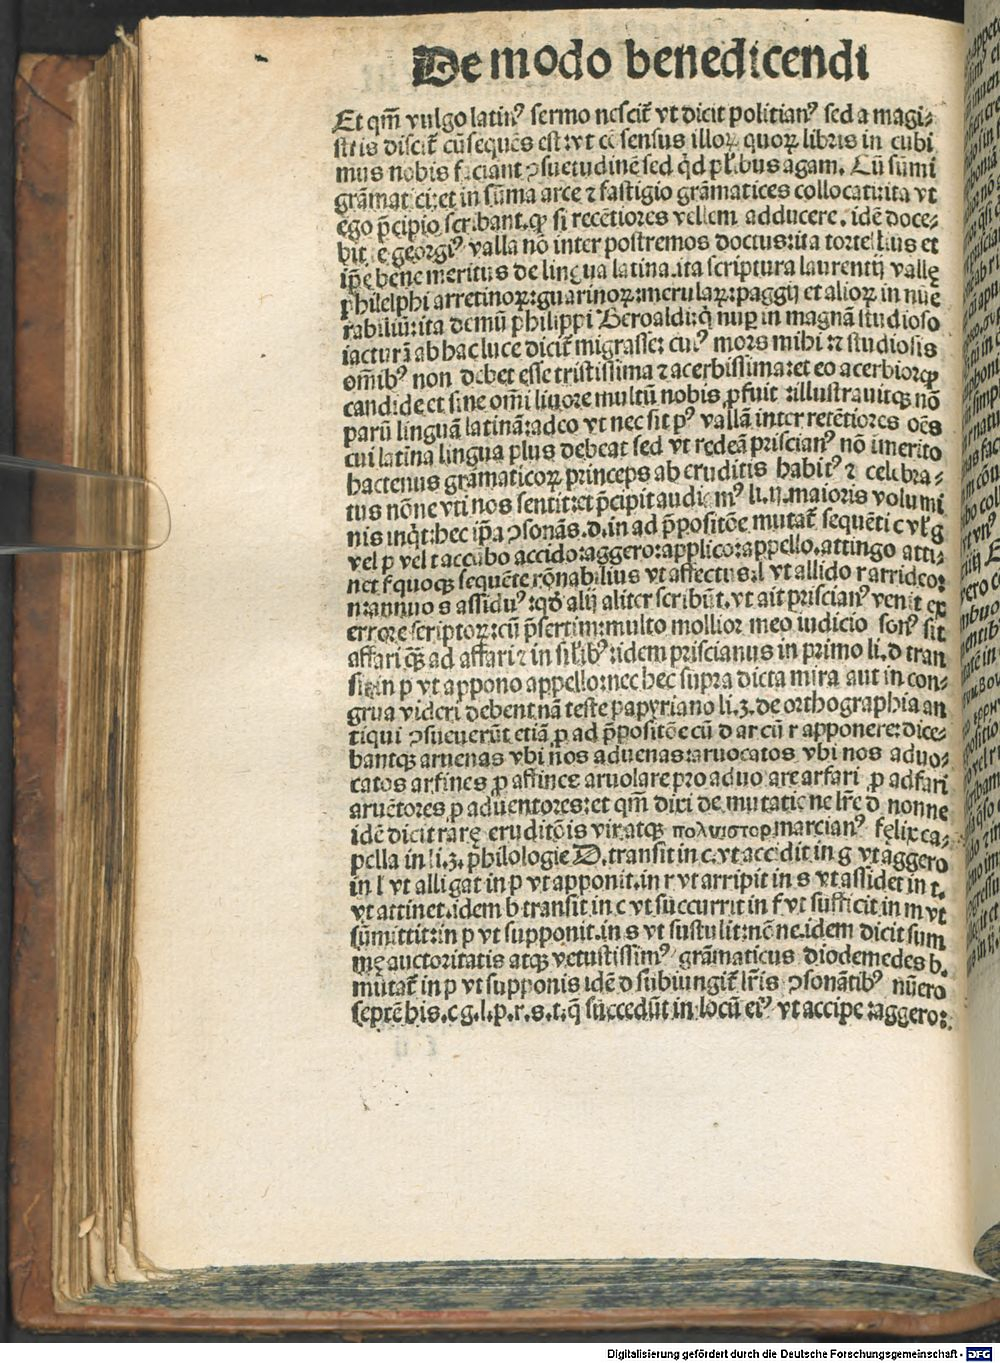 De modo benedicendi
Et qm̄ vulgo latinꝰ sermo nescit᷑ vt dicit politianꝰ sed a magi⸗
stris discit᷑ cōsequēs est: vt cōsensus illoꝝ quoꝝ libris in cubi
mus nobis faciant ꝯsuetudinē sed qđ pl̄ibus agam. Cū sūmi
grāmatici: et in sūma arce ⁊ fastigio grāmatices collocati: ita vt
ego p̄cipio scribant. ꝙ si recētiores vellem adducere. idē doce⸗
bit e georgiꝰ valla nō inter postremos doctus: ita tortellius et
ip̄e bene meritus de lingua latina. ita scriptura laurentij vallę
philelphi arretinoꝝ: guarinoꝝ: merulaꝝ: paggij et alioꝝ in nūe
rabiliū: ita demū philippi Beroaldi: q̄ nuꝑ in magnā studioso
iacturā ab hac luce dicit᷑ migrasse: cuiꝰ mors mihi ⁊ studiosis
om̄ibꝰ non debet esse tristissima ⁊ acerbissima: et eo acerbior ꝙ
candide et sine om̄i liuore multū nobis ꝓfuit ⁊ illustrauitꝙ nō
parū linguā latinā: adeo vt nec sit pꝰ vallā inter retētiores oēs
cui latina lingua plus debeat sed vt redeā priscianꝰ nō imerito
hactenus gramaticoꝝ princeps ab eruditis habitꝰ ⁊ celebra⸗
tus nōne vti nos sentit: et p̄cipit audiamꝰ li. ij. maioris volumi
nis inqt: hec ip̄a ꝯsonās. d. in ad p̄positōe mutat᷑ sequēti c vl̓ g
vel p vel t accūbo accido: aggero: applico: appello. attingo atti⸗
net f quoꝙ sequēte rōnabilius vt affectus: l vt allido r arrideo:
n: annuo s assiduꝰ: qđ alij aliter scribūt. vt ait priscianꝰ venit ex
errore scriptoꝝ: cū p̄sertim: multo mollior meo iudicio sonꝰ sit
affari ꝙ̄ ad affari ⁊ in sil̓ibꝰ: idem priscianus in primo li. d tran
sit in p vt appono appello: nec hec supra dicta mira aut in con⸗
grua videri debent nā teste papyriano li. 3. de orthographia an
tiqui ꝯsueuerūt etiā ꝓ ad p̄positōe cū d ar cū r apponere: dice⸗
bantꝙ aruenas vbi nos aduenas: aruocatos vbi nos aduo⸗
catos arfines ꝓ affines aruolare pro aduolare arfari ꝓ adfari
aruētores ꝓ aduentores: et qm̄ dixi de mutatione lr̄e d nonne
idē dicit rarę eruditōis vir atꝙ πολυιστορ marcianꝰ fęlix ca⸗
pella in li. 3. philologie D. transit in c. vt accedit in g vt aggero
in l vt alligat in p vt apponit. in r vt arripit in s vt assidet in t.
vt attinet. idem b transit in c vt succurrit in f vt sufficit in m vt
sūmittit: in p vt supponit. in s vt sustulit: nōne. idem dicit sum
mę auctoritatis atꝙ vetustissimꝰ grāmaticus diodemedes b.
mutat᷑ in p vt supponis idē d subiungit᷑ lr̄is ꝯsonātibꝰ nūero
septē his. c g. l. p. r. s. t. q̄ succedūt in locū eiꝰ vt accipe: aggero:
Digitalisierung gefördert durch die Deutsche Forschungsgemeinschaft - DFG